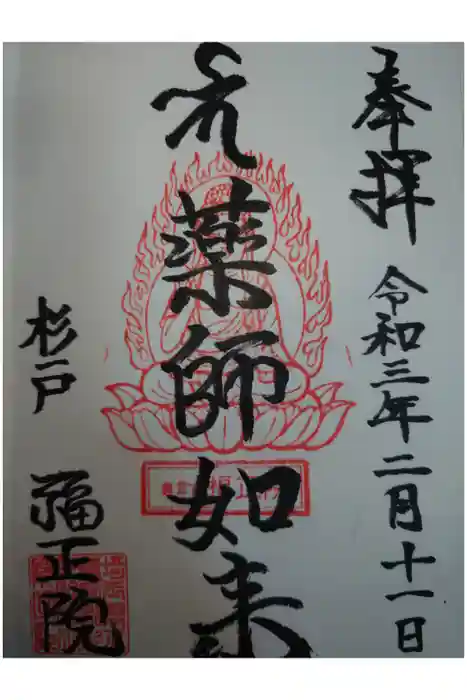 奉拝
令和三年二月十一日
薬師如来
杉戸
福正院